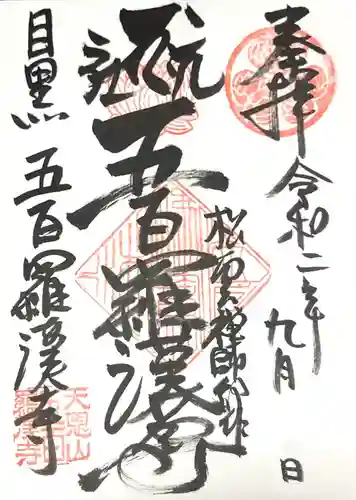 奉拝 令和二年九月 日
松雲禅師作
五百羅漢
目黒 五百羅漢寺
天恩山
五百
羅漢寺